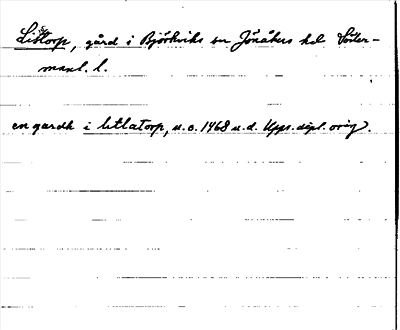 Listorp, gård i Björkviks sn Jönåkers hd Söder-
manl. l.
en gardh i litlatorp, u.o. 1468 u.d. Upps. dipl. orig).